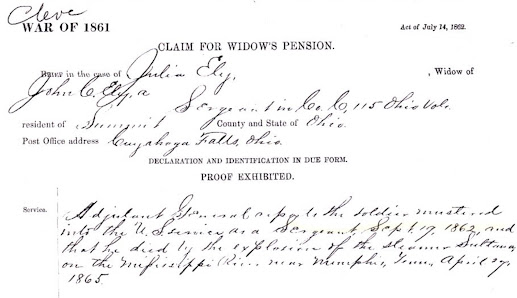 Cleve
WAR OF 1861
Act of July 14, 1862.
CLAIM FOR WIDOW'S PENSION.
BRIEF in the case of Julia Ely, , Widow of
John C. Ely, a Sergeant in Co. C, 115 Ohio Vols.
resident of Summit County and State of Ohio.
Post Office address Cuyahoga Falls, Ohio.
DECLARATION AND IDENTIFICATION IN DUE FORM.
PROOF EXHIBITED.
Service. Adjutant General reports the soldier mustered
into the U.S. service as a Sergeant Sept. 17, 1862, and
that he died by the explosion of the steamer Sultana,
on the Mississippi River near Memphis, Tenn, April 27,
1865.